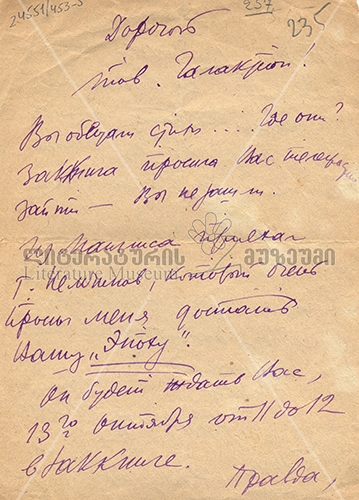 24551/453-Э
237
235
Дорогой
тов. Галактион!
Вы обещали стихи.... Где они?
Заккнига просила Вас телеграммой
зайти — Вы не зашли.
Из приехал
ლიტერატურის მუზეუმი
Literature Museum
т. который очень
просил меня достать
Вашу „Эпоху".
Он будет ждать Вас,
13го октября от 11 до 12
в Заккниге.
Правда,